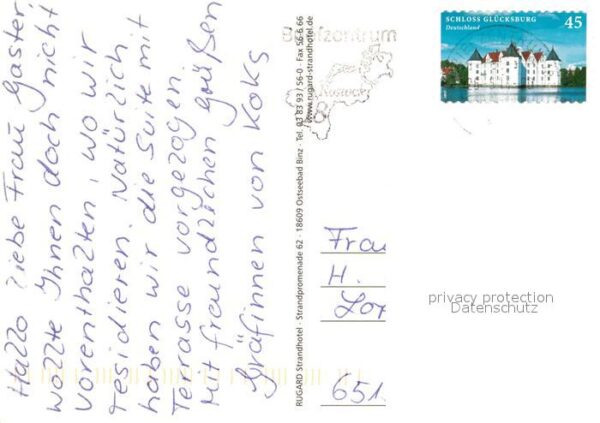 Hallo liebe Frau Gaster,
wollte Ihnen doch nicht
vorenthalten, wo wir
residieren. Natürlich
haben wir die Suite mit
Terrasse vorgezogen.
Mit freundlichen Grüßen
Gräfinnen von Koks
RUGARD Strandhotel · Strandpromenade 62 · 18609 Ostseebad Binz · Tel. 03 83 93 / 56-0 · Fax 56 6 66
www.rugard-strandhotel.de
Briefzentrum
SCHLOSS GLÜCKSBURG 45
Deutschland
Frau
H.
651
privacy protection
Datenschutz